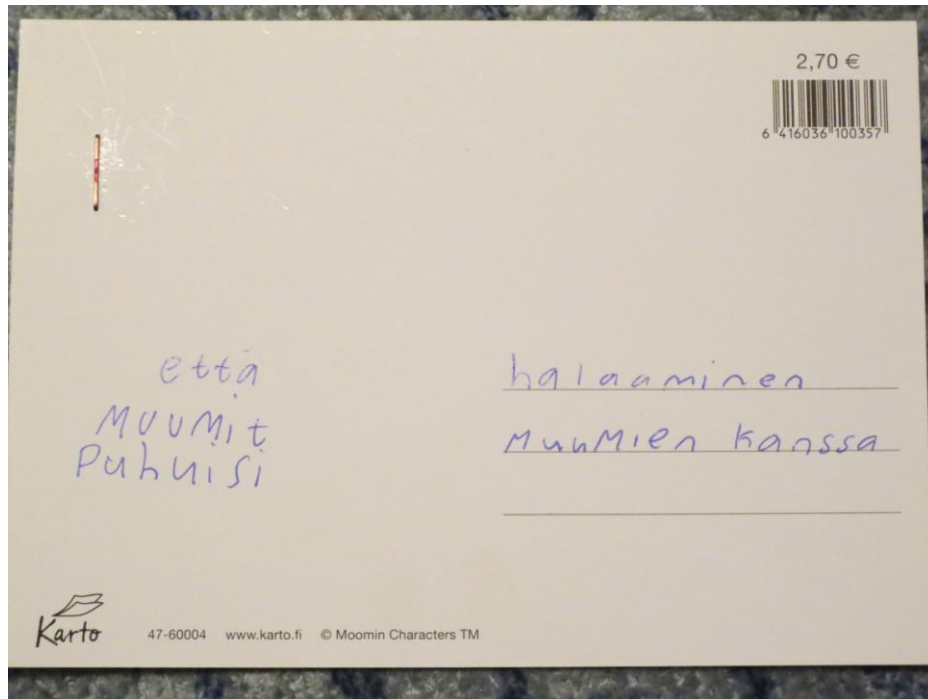 2,70 €
6 416036 100357
että
MUUMit
Puhuisi
halaaminen
MuuMien kanssa
Karto
47-60004 www.karto.fi © Moomin Characters TM